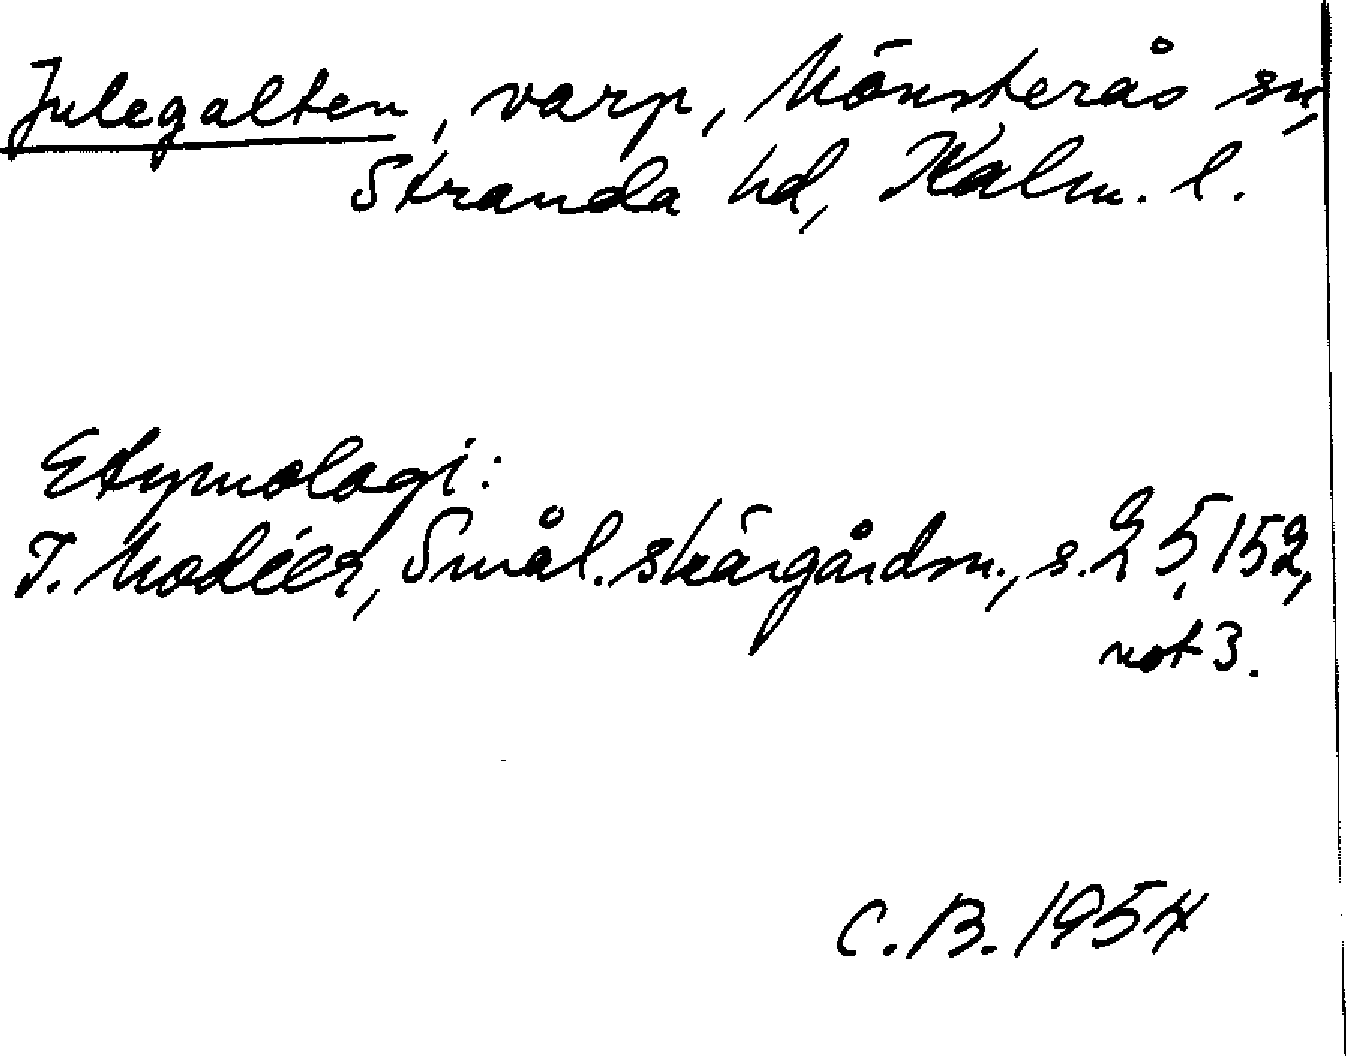 Julegalten, varp, Mönsterås sn,
Stranda hd, Kalm. l.
Etymologi:
I. Modéer, Smål. skärgårdsn., s. 25, 152,
not 3.
C. B. 1954